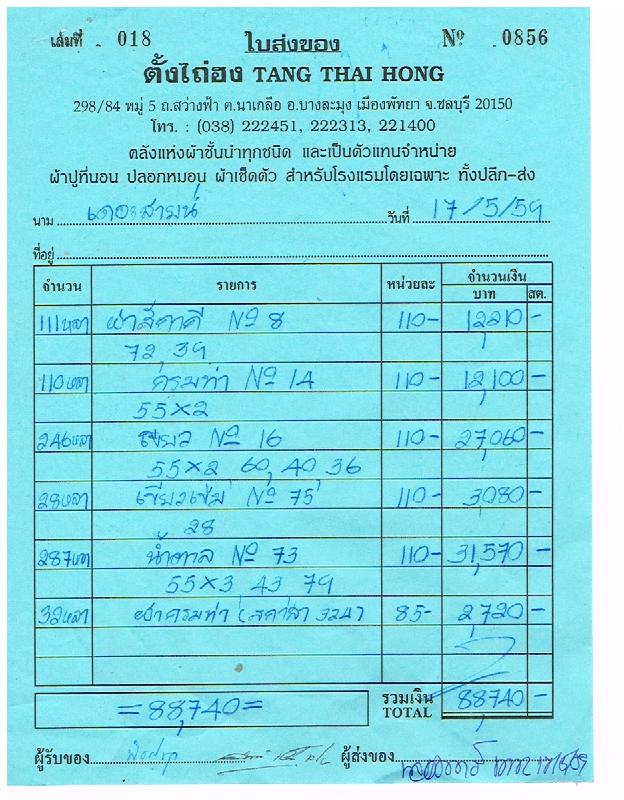 เล่มที่ 018 ใบส่งของ Nº 0856
ตั้งไถ่ฮง TANG THAI HONG
298/84 หมู่ 5 ถ.สว่างฟ้า ต.นาเกลือ อ.บางละมุง เมืองพัทยา จ.ชลบุรี 20150
โทร. : (038) 222451, 222313, 221400
คลังแห่งผ้าชั้นนำทุกชนิด และเป็นตัวแทนจำหน่าย
ผ้าปูที่นอน ปลอกหมอน ผ้าเช็ดตัว สำหรับโรงแรมโดยเฉพาะ ทั้งปลีก-ส่ง
นาม วันที่ 17/5/59
ที่อยู่
จำนวน รายการ หน่วยละ จำนวนเงิน
บาท สต.
111หลา ผ้าสีกากี Nº 8 110- 12,210 -
72, 39
110หลา กรมท่า Nº 14 110- 12,100 -
55×2
246หลา เขียว Nº 16 110- 27,060 -
55×2, 60, 40, 36
28หลา เขียวเข้ม Nº 75 110- 3,080 -
28
287หลา น้ำตาล Nº 73 110- 31,570 -
55×3, 43 79
32หลา ผ้ากรมท่า 85- 2,720 -
=88,740= รวมเงิน 88,740 -
TOTAL
ผู้รับของ ผู้ส่งของ